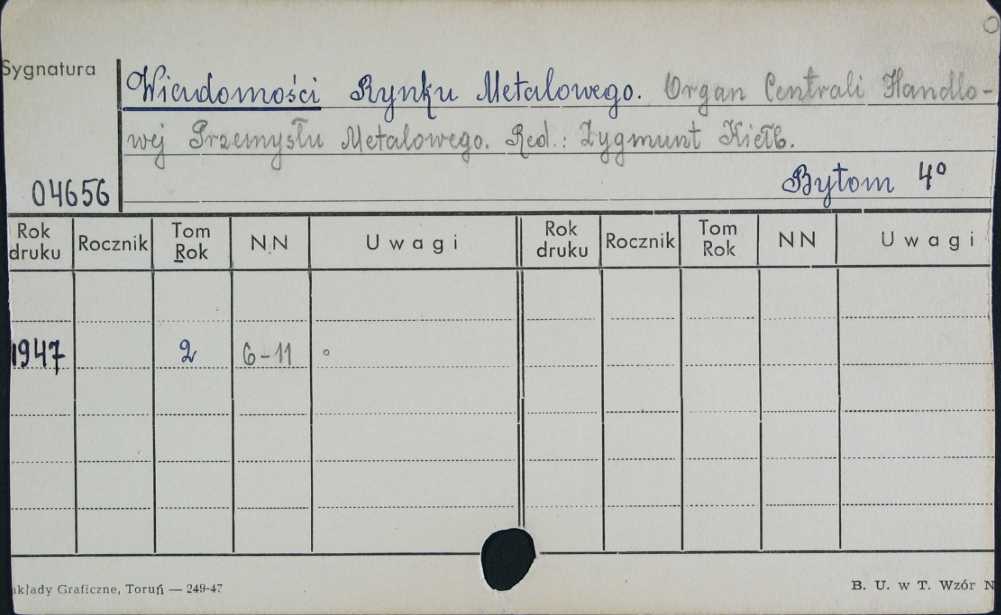 Sygnatura
Wiadomości Rynku Metalowego. Organ Centrali Handlo-
wej Przemysłu Metalowego. Red.: Zygmunt Kiełb.
04656 Bytom 4°
Rok druku Rocznik Tom Rok NN Uwagi Rok druku Rocznik Tom Rok NN Uwagi
1947 2 6-11 °
akłady Graficzne, Toruń — 249-47 B. U. w T. Wzór N